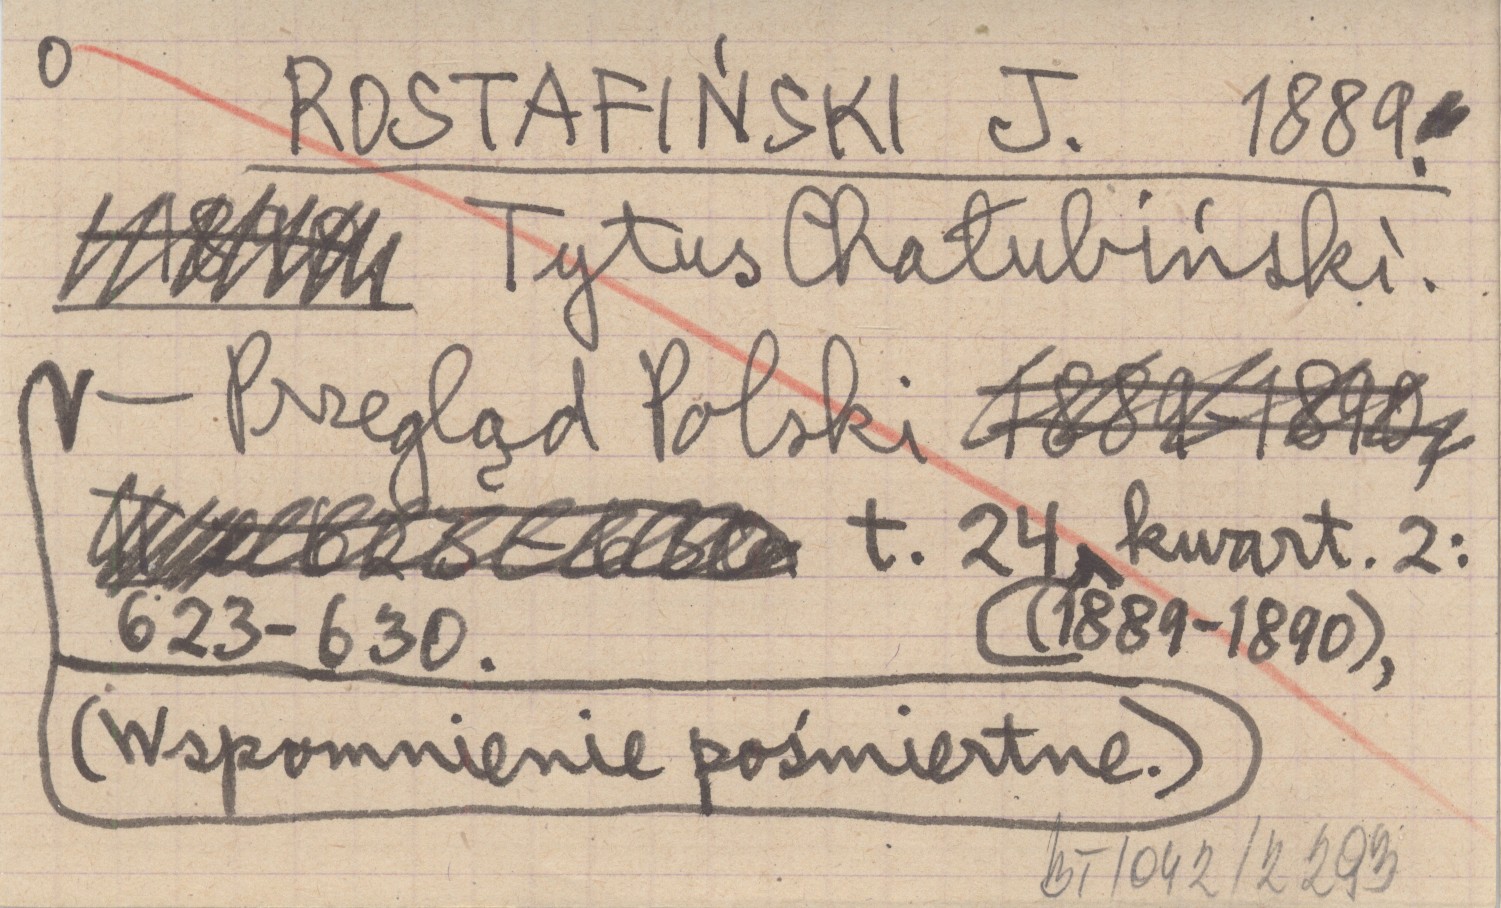 O
ROSTAFIŃSKI J. 1889.
Tytus Chałubiński.
— Przegląd Polski 1889-1890,
t. 24, kwart. 2:
623-630. (1889-1890),
(Wspomnienie pośmiertne.)
BT/042/2293